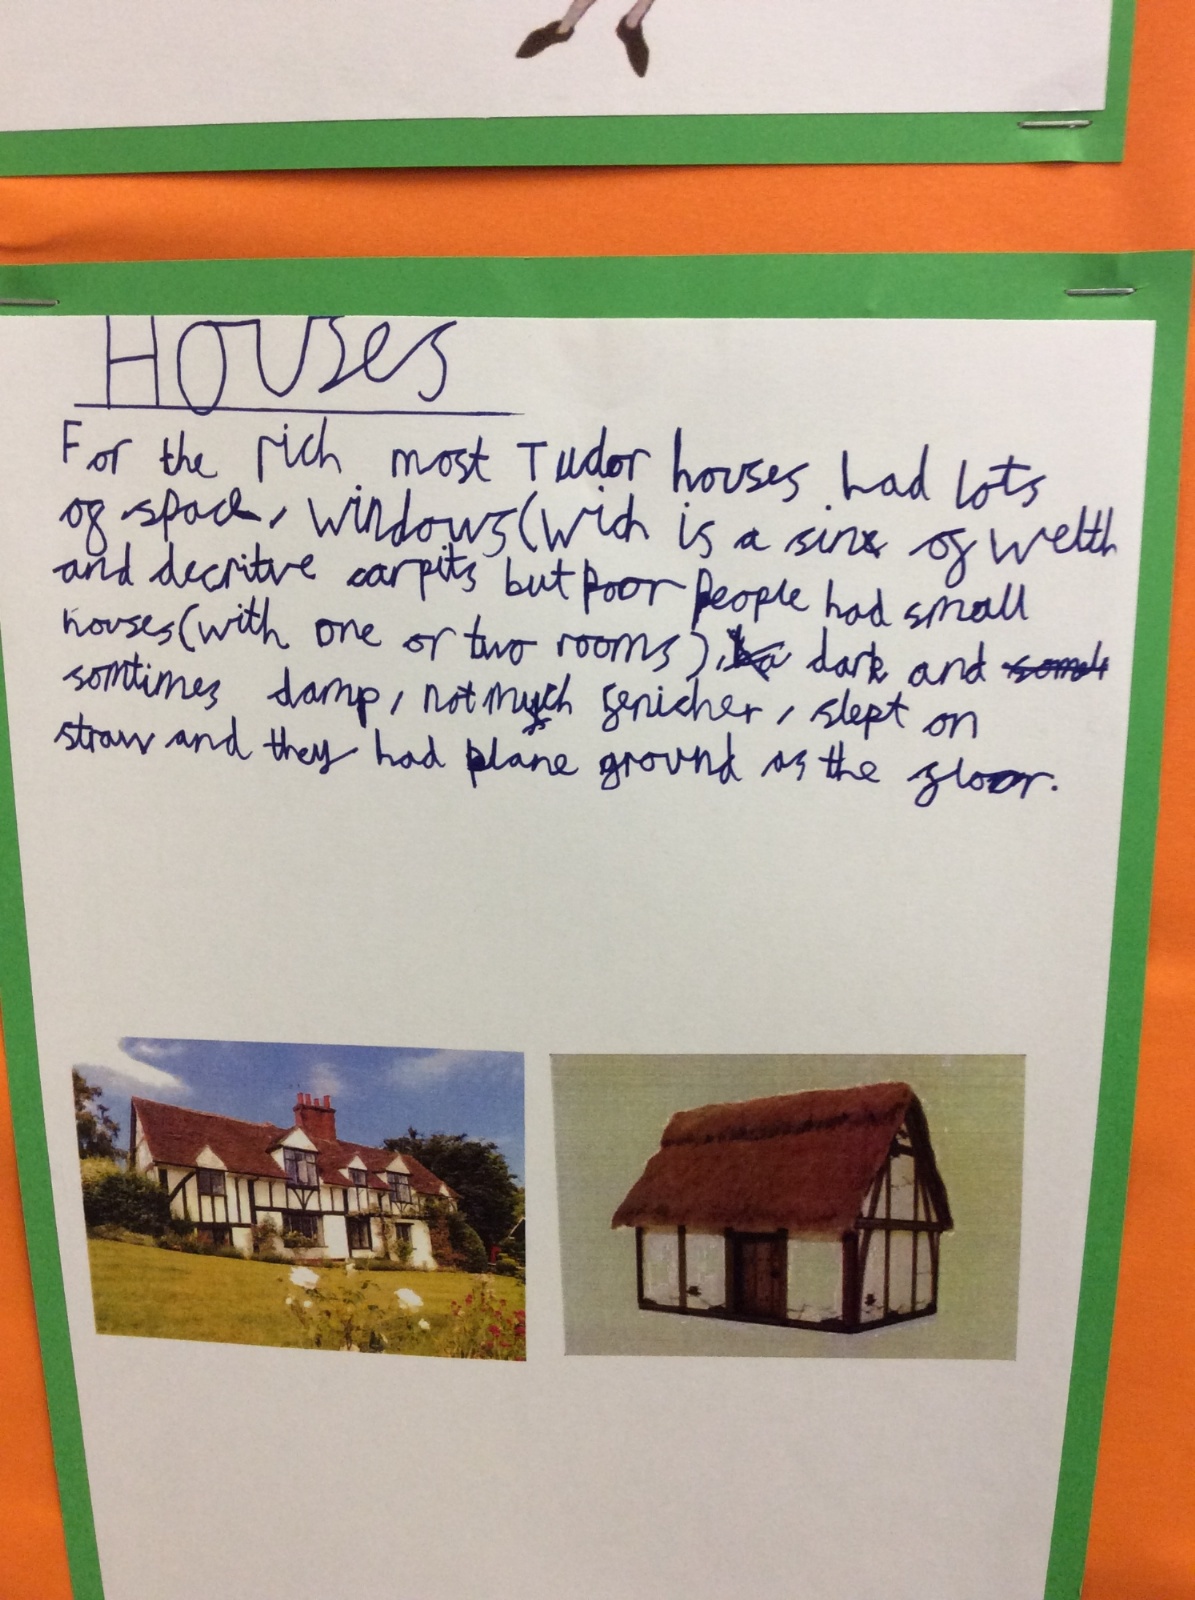 Houses
For the rich most Tudor houses had lots
of space, windows (wich is a sine of welth
and decritve carpits but poor people had small
houses (with one or two rooms), dark and
somtimes damp, not much fenicher, slept on
straw and they had plane ground as the floor.